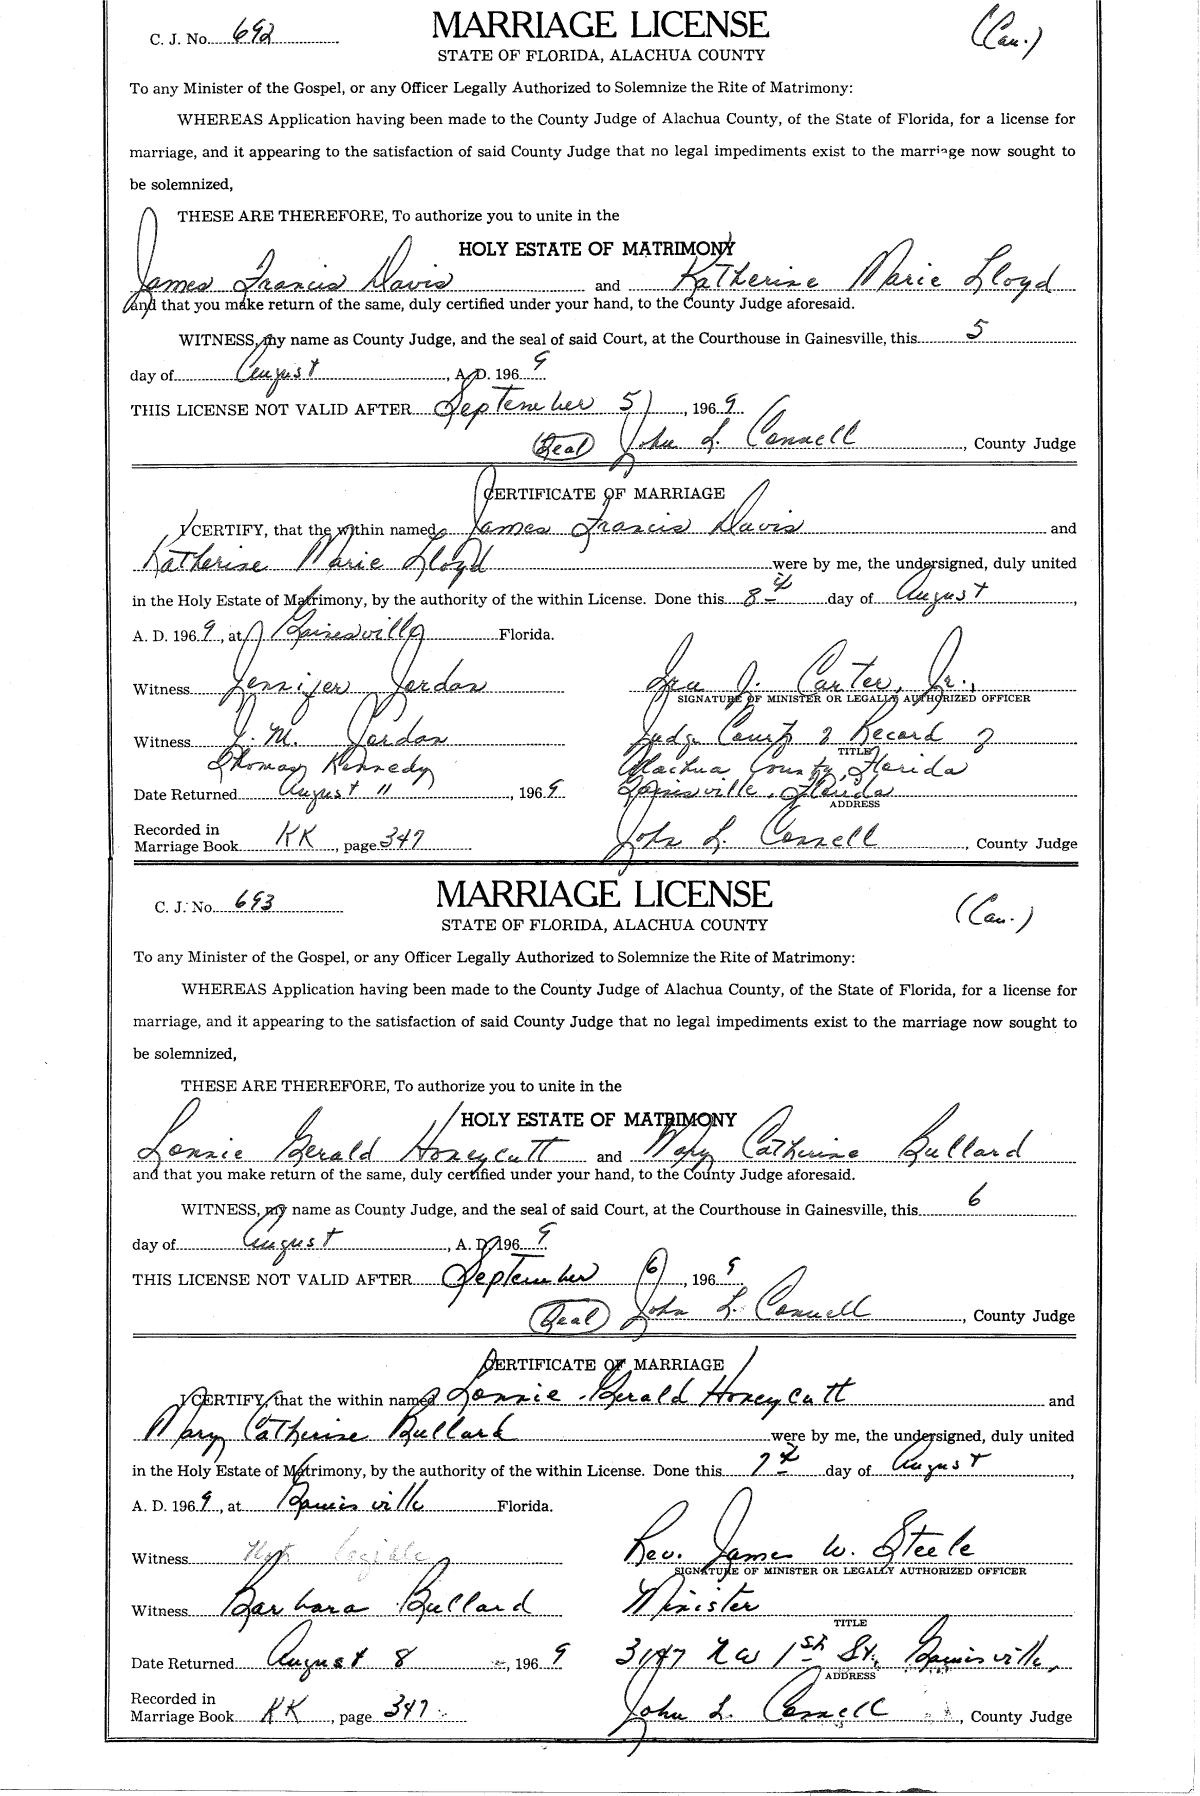 C. J. No. 692
MARRIAGE LICENSE
(Cau.)
STATE OF FLORIDA, ALACHUA COUNTY
To any Minister of the Gospel, or any Officer Legally Authorized to Solemnize the Rite of Matrimony:
WHEREAS Application having been made to the County Judge of Alachua County, of the State of Florida, for a license for
marriage, and it appearing to the satisfaction of said County Judge that no legal impediments exist to the marriage now sought to
be solemnized,
THESE ARE THEREFORE, To authorize you to unite in the
HOLY ESTATE OF MATRIMONY
James Francis Davis and Katherine Marie Lloyd
and that you make return of the same, duly certified under your hand, to the County Judge aforesaid.
WITNESS, my name as County Judge, and the seal of said Court, at the Courthouse in Gainesville, this 5
day of August, A. D. 1969
THIS LICENSE NOT VALID AFTER September 5, 1969
(Seal) John L. Connell, County Judge
CERTIFICATE OF MARRIAGE
I CERTIFY, that the within named James Francis Davis and
Katherine Marie Lloyd were by me, the undersigned, duly united
in the Holy Estate of Matrimony, by the authority of the within License. Done this 8th day of August,
A. D. 1969, at Gainesville Florida.
Witness Jennifer Jordan Ira J. Carter, Jr.,
SIGNATURE OF MINISTER OR LEGALLY AUTHORIZED OFFICER
Witness J. M. Jordan Judge Court of Record of
TITLE
Thomas Kennedy Alachua County, Florida
Date Returned August 11, 1969 Gainesville, Florida
ADDRESS
Recorded in
Marriage Book KK, page 347 John L. Connell, County Judge
C. J. No. 693
MARRIAGE LICENSE
(Cau.)
STATE OF FLORIDA, ALACHUA COUNTY
To any Minister of the Gospel, or any Officer Legally Authorized to Solemnize the Rite of Matrimony:
WHEREAS Application having been made to the County Judge of Alachua County, of the State of Florida, for a license for
marriage, and it appearing to the satisfaction of said County Judge that no legal impediments exist to the marriage now sought to
be solemnized,
THESE ARE THEREFORE, To authorize you to unite in the
HOLY ESTATE OF MATRIMONY
Lonnie Gerald Honeycutt and Mary Catherine Bullard
and that you make return of the same, duly certified under your hand, to the County Judge aforesaid.
WITNESS, my name as County Judge, and the seal of said Court, at the Courthouse in Gainesville, this 6
day of August, A. D. 1969
THIS LICENSE NOT VALID AFTER September 6, 1969
(Seal) John L. Connell, County Judge
CERTIFICATE OF MARRIAGE
I CERTIFY, that the within named Lonnie Gerald Honeycutt and
Mary Catherine Bullard were by me, the undersigned, duly united
in the Holy Estate of Matrimony, by the authority of the within License. Done this 7th day of August,
A. D. 1969, at Gainesville Florida.
Witness Not legible Rev. James W. Steele
SIGNATURE OF MINISTER OR LEGALLY AUTHORIZED OFFICER
Witness Barbara Bullard Minister
TITLE
Date Returned August 8, 1969 3147 NW 1st St., Gainesville,
ADDRESS
Recorded in
Marriage Book KK, page 347 John L. Connell, County Judge